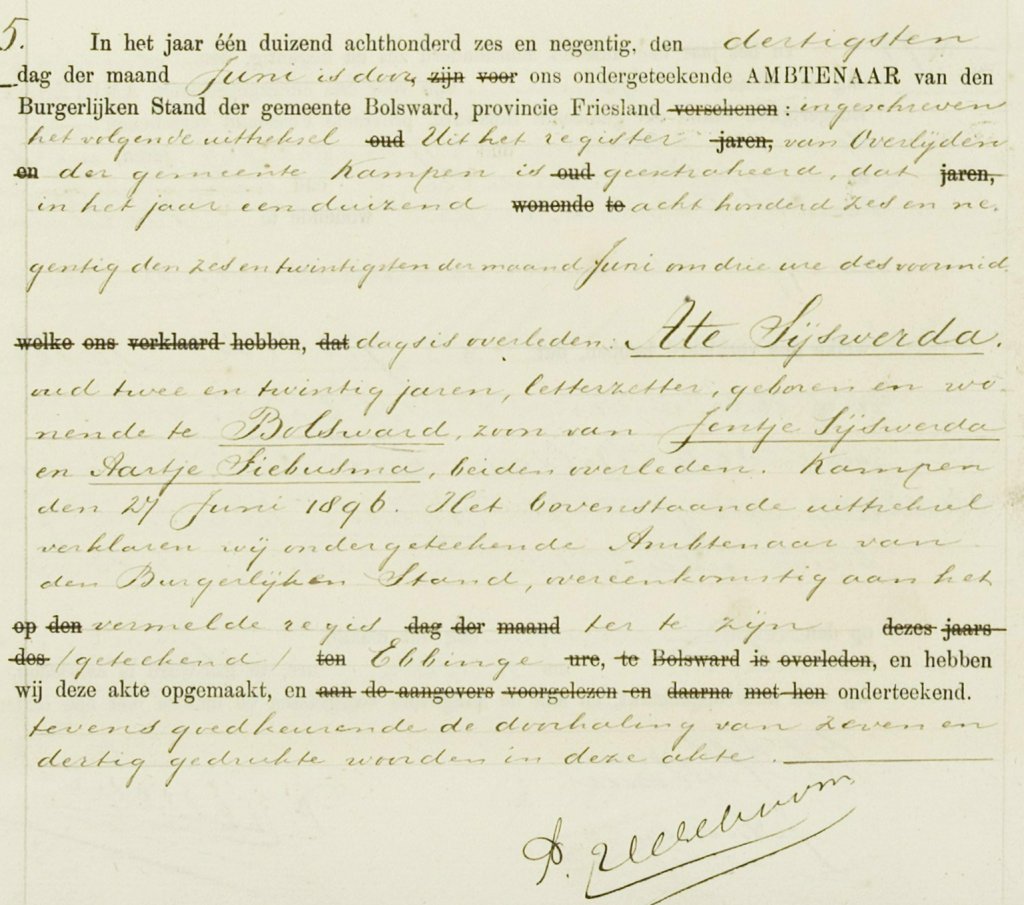 5.
In het jaar één duizend achthonderd zes en negentig, den dertigsten
dag der maand Juni is door, zijn voor ons ondergeteekende AMBTENAAR van den
Burgerlijken Stand der gemeente Bolsward, provincie Friesland verschenen : ingeschreven
het volgende uittreksel oud Uit het register jaren, van Overlijden
en der gemeente Kampen is oud geextraheerd, dat jaren,
in het jaar een duizend wonende te acht honderd zes en ne-
gentig den zes en twintigsten der maand Juni om drie ure des voormid
welke ons verklaard hebben, dat dags is overleden: Ate Sijswerda.
oud twee en twintig jaren, letterzetter, geboren en wo-
nende te Bolsward, zoon van Jentje Sijswerda
en Aartje Siebusma, beiden overleden. Kampen
den 27 Juni 1896. Het bovenstaande uittreksel
verklaren wij ondergeteekende Ambtenaar van
den Burgerlijken Stand, overéénkomstig aan het
op den vermelde regis dag der maand ter te zijn dezes jaars
des /geteekend/ ten Ebbinge ure, te Bolsward is overleden, en hebben
wij deze akte opgemaakt, en aan de aangevers voorgelezen en daarna met hen onderteekend.
tevens goedkeurende de doorhaling van zeven en
dertig gedrukte woorden in deze akte.